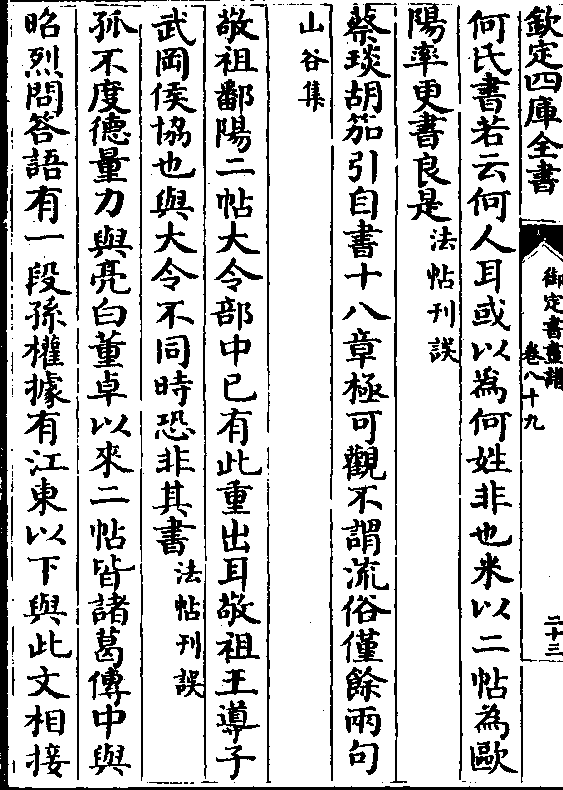 欽定四庫全書
御定書畫譜
卷八十九
二十三
何氏書若云何人耳或以為何姓非也米以二帖為歐
陽率更書良是法帖刊誤
蔡琰胡笳引自書十八章極可觀不謂流俗僅餘兩句
山谷集
敬祖鄱陽二帖大令部中已有此重出耳敬祖王導子
武岡侯協也與大令不同時恐非其書法帖刊誤
孤不度德量力與亮曰董卓以來二帖皆諸葛傳中與
昭烈問答語有一段孫權據有江東以下與此文相接